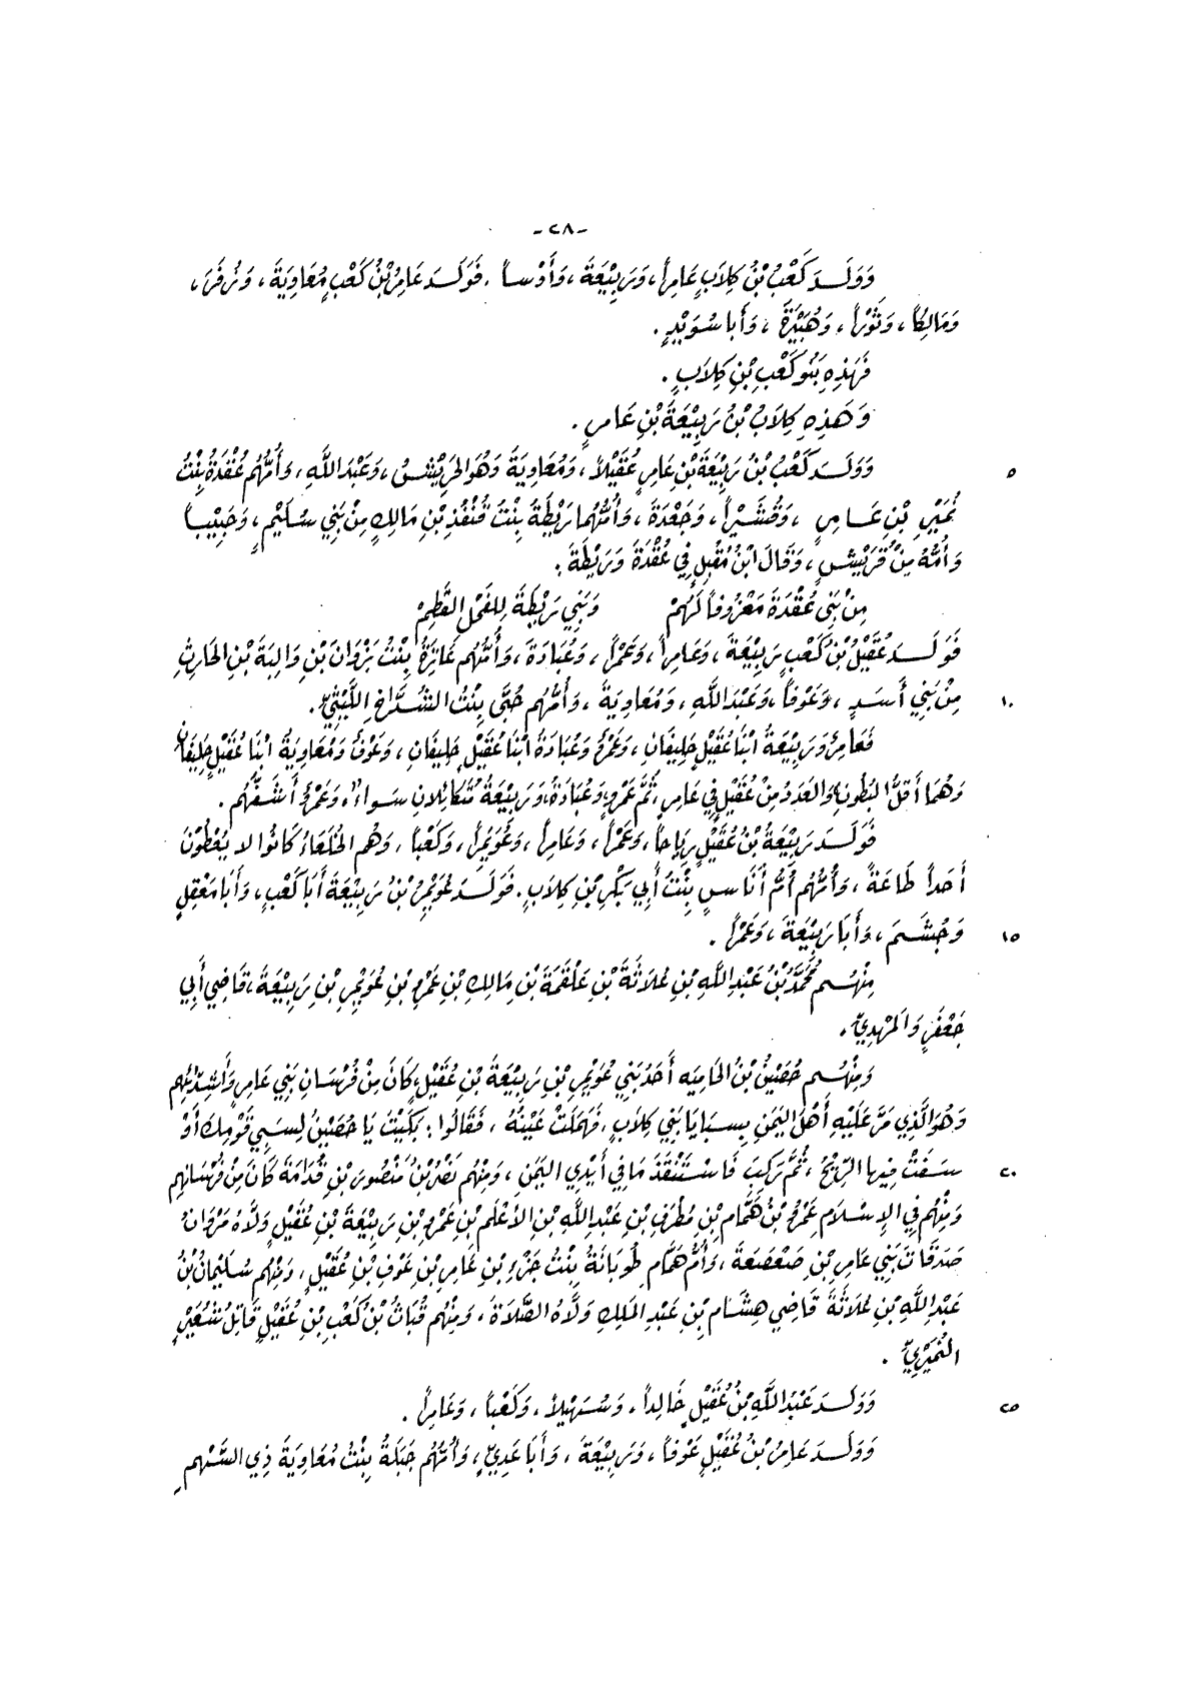 -٢٨-
وَوَلَدَ كَعْبُ بْنُ كِلَابٍ عَامِراً، وَرَبِيْعَةَ، وَأَوْساً. فَوَلَدَ عَامِرُ بْنُ كَعْبٍ مُعَاوِيَةَ، وَزُفَرَ،
وَمَالِكاً، وَثَوْراً، وَهُبَيْرَةَ، وَأَبَا سُوَيْدٍ.
فَهَذِهِ بَنُو كَعْبِ بْنِ كِلَابٍ.
وَهَذِهِ كِلَابُ بْنُ رَبِيْعَةَ بْنِ عَامِرٍ.
٥ وَوَلَدَ كَعْبُ بْنُ رَبِيْعَةَ بْنِ عَامِرٍ عُقَيْلاً، وَمُعَاوِيَةَ وَهُوَ الحَرِيْشُ، وَعَبْدَ اللَّهِ، وَأُمُّهُم عُقْدَةُ بِنْتُ
نُمَيْرِ بْنِ عَامِرٍ، وَقُشَيْراً، وَجَعْدَةَ، وَأُمُّهُما رَيْطَةُ بِنْتُ قُنْفُذِ بْنِ مَالِكٍ مِنْ بَنِي سُلَيْمٍ، وَحَبِيْباً
وَأُمُّهُ مِنْ قُرَيْشٍ، وَقَالَ ابْنُ مُقْبِلٍ فِي عُقْدَةَ وَرَيْطَةَ:
مِنْ بَنِي عُقْدَةَ مَعْرُوفاً لَهُمْ وَبَنِي رَيْطَةَ لِلفَحْلِ القَطِمْ
فَوَلَدَ عُقَيْلُ بْنُ كَعْبٍ رَبِيْعَةَ، وَعَامِراً، وَعَمْراً، وَعُبَادَةَ، وَأُمُّهُم غَاضِرَةُ بِنْتُ بَزْوَانَ بْنِ وَالِبَةَ بْنِ الحَارِثِ
١٠ مِنْ بَنِي أَسَدٍ، وَعَوْفاً، وَعَبْدَ اللَّهِ، وَمُعَاوِيَةَ، وَأُمُّهُم حُبَّى بِنْتُ الشُّدَّاخِ اللَّيْثِيِّ.
فَعَامِرٌ وَرَبِيْعَةُ ابْنَا عُقَيْلٍ حَلِيفَانِ، وَعَمْرٌو وَعُبَادَةُ ابْنَا عُقَيْلٍ حَلِيفَانِ، وَعَوْفٌ وَمُعَاوِيَةُ ابْنَا عُقَيْلٍ حَلِيفَانِ
وَهُمَا أَقَلُّ البُطُونِ، وَالعَدَدُ مِنْ عُقَيْلٍ فِي عَامِرٍ، ثُمَّ عَمْرٍو، وَعُبَادَةُ، وَرَبِيْعَةُ مُتَكَائِلانِ سَواءً، وَعَمْرٌو أَشَفُّهُم.
فَوَلَدَ رَبِيْعَةُ بْنُ عُقَيْلٍ رِيَاحاً، وَعَمْراً، وَعَامِراً، وَعُوَيْمِراً، وَكَعْباً، وَهُم الخُلَعَاءُ كَانُوا لا يُعْطُوْنَ
أَحَداً طَاعَةً، وَأُمُّهُم أُمُّ أُنَاسٍ بِنْتُ أَبِي بَكْرِ بْنِ كِلَابٍ. فَوَلَدَ عُوَيْمِرُ بْنُ رَبِيْعَةَ أَبَا كَعْبٍ، وَأَبَا مَعْقِلٍ
١٥ وَجُشَمَ، وَأَبَا رَبِيْعَةَ، وَعَمْراً.
مِنْهُم مُحَمَّدُ بْنُ عَبْدِ اللَّهِ بْنِ عُلَاثَةَ بْنِ عَلْقَمَةَ بْنِ مَالِكِ بْنِ عَمْرِو بْنِ عُوَيْمِرِ بْنِ رَبِيْعَةَ، قَاضِي أَبِي
جَعْفَرٍ وَالمَهْدِيِّ.
وَمِنْهُم حُصَيْنُ بْنُ الحَامِيَه أَحَدُ بَنِي عُوَيْمِرِ بْنِ رَبِيْعَةَ بْنِ عُقَيْلٍ، كَانَ مِنْ فُرْسَانِ بَنِي عَامِرٍ وَأَشِدَّائِهِم
وَهُوَ الَّذِي مَرَّ عَلَيْهِ أَهْلُ اليَمَنِ بِسَبَايَا بَنِي كِلَابٍ، فَهَمَلَتْ عَيْنُهُ، فَقَالُوا: بَكَيْتَ يَا حُصَيْنُ لِسَبْيِ قَوْمِكَ أَوْ
٢٠ سَفَتْ فِيهَا الرِّيْحُ، ثُمَّ رَكِبَ فَاسْتَنْقَذَ مَا فِي أَيْدِي اليَمَنِ، وَمِنْهُم نَصْرُ بْنُ مَنْصُورِ بْنِ قُدَامَةَ كَانَ مِنْ فُرْسَانِهِم
وَمِنْهُم فِي الإِسْلَامِ عَمْرُو بْنُ هَمَّامِ بْنِ مُطَرِّفِ بْنِ عَبْدِ اللَّهِ بْنِ الأَعْلَمِ بْنِ عَمْرِو بْنِ رَبِيْعَةَ بْنِ عُقَيْلٍ وَلَّاهُ مَرْوَانُ
صَدَقَاتِ بَنِي عَامِرِ بْنِ صَعْصَعَةَ، وَأُمُّ هَمَّامٍ طُوبَانَةُ بِنْتُ جَزْءِ بْنِ عَامِرِ بْنِ عَوْفِ بْنِ عُقَيْلٍ، وَمِنْهُم سُلَيْمَانُ بْنُ
عَبْدِ اللَّهِ بْنِ عُلَاثَةَ قَاضِي هِشَامِ بْنِ عَبْدِ المَلِكِ وَلَّاهُ الصَّلَاةَ، وَمِنْهُم قُبَاثُ بْنُ كَعْبِ بْنِ عُقَيْلٍ قَاتِلُ شُعَيْرٍ
النُّمَيْرِيِّ.
٢٥ وَوَلَدَ عَبْدُ اللَّهِ بْنُ عُقَيْلٍ خَالِداً، وَسُهَيْلاً، وَكَعْباً، وَعَامِراً.
وَوَلَدَ عَامِرُ بْنُ عُقَيْلٍ عَوْفاً، وَرَبِيْعَةَ، وَأَبَا عَدِيٍّ، وَأُمُّهُم جَبَلَةُ بِنْتُ مُعَاوِيَةَ ذِي السَّهْمِ